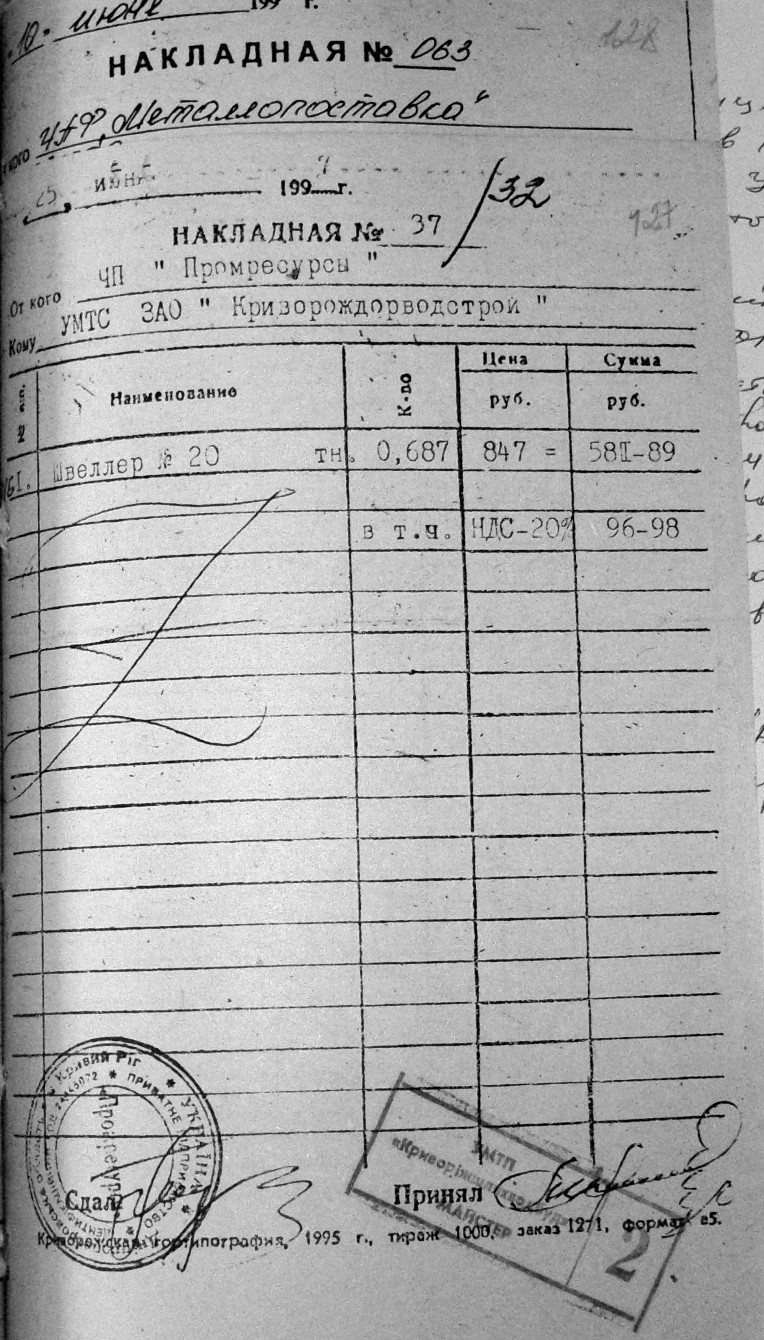 "10" июне 199 г.
128
НАКЛАДНАЯ № 063
кого ЧПФ „Металлопоставка"
25, июня 1997 г.
НАКЛАДНАЯ № 37 /32
127
От кого ЧП " Промресурсы "
Кому УМТС ЗАО " Криворождорводстрой "
№ п.п. Наименование К-во Цена руб. Сумма руб.
161. Швеллер № 20 тн. 0,687 847 = 581-89
в т.ч. НДС-20% 96-98
УКРАЇНА
Кривий Ріг
ПРИВАТНЕ ПІДПРИЄМСТВО
Промресурси
УМТП
МАЙСТЕР
2
Сдал
Принял
Криворожская гортипография, 1995 г., тираж 1000, заказ 1271, формат а5.